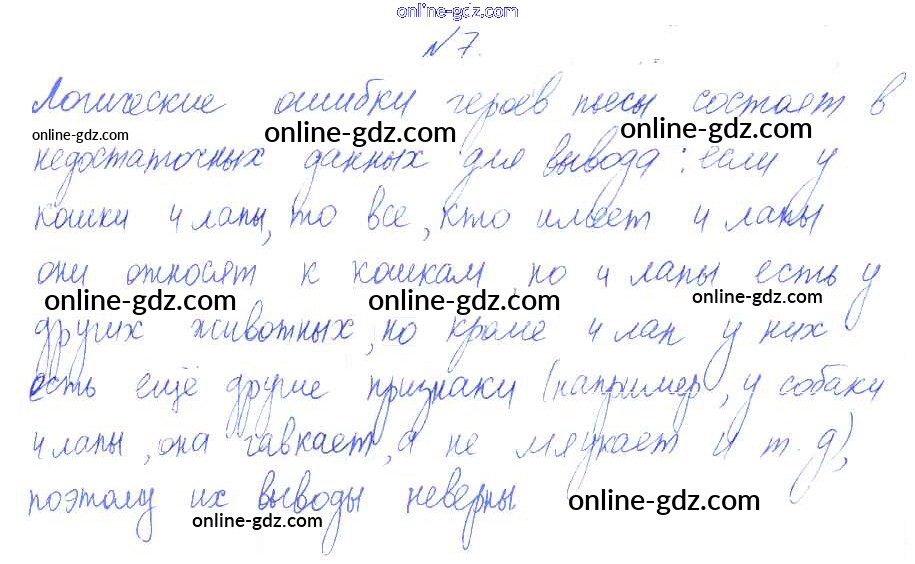 online-gdz.com
№7.
Логические ошибки героев пьесы состоят в
online-gdz.com online-gdz.com online-gdz.com
недостаточных данных для вывода: если у
кошки 4 лапы, то все, кто имеет 4 лапы
они относят к кошкам, но 4 лапы есть у
online-gdz.com online-gdz.com online-gdz.com
других животных, но кроме 4 лап у них
есть ещё другие признаки (например, у собаки
4 лапы, она гавкает, а не мяукает и т.д),
поэтому их выводы неверны
online-gdz.com online-gdz.com